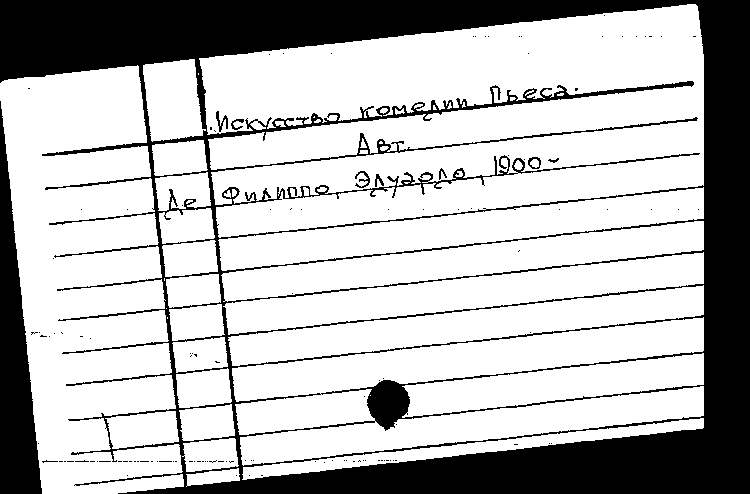 Искусство комедии. Пьеса.
Авт.
Де Филиппо, Эдуардо, 1900-